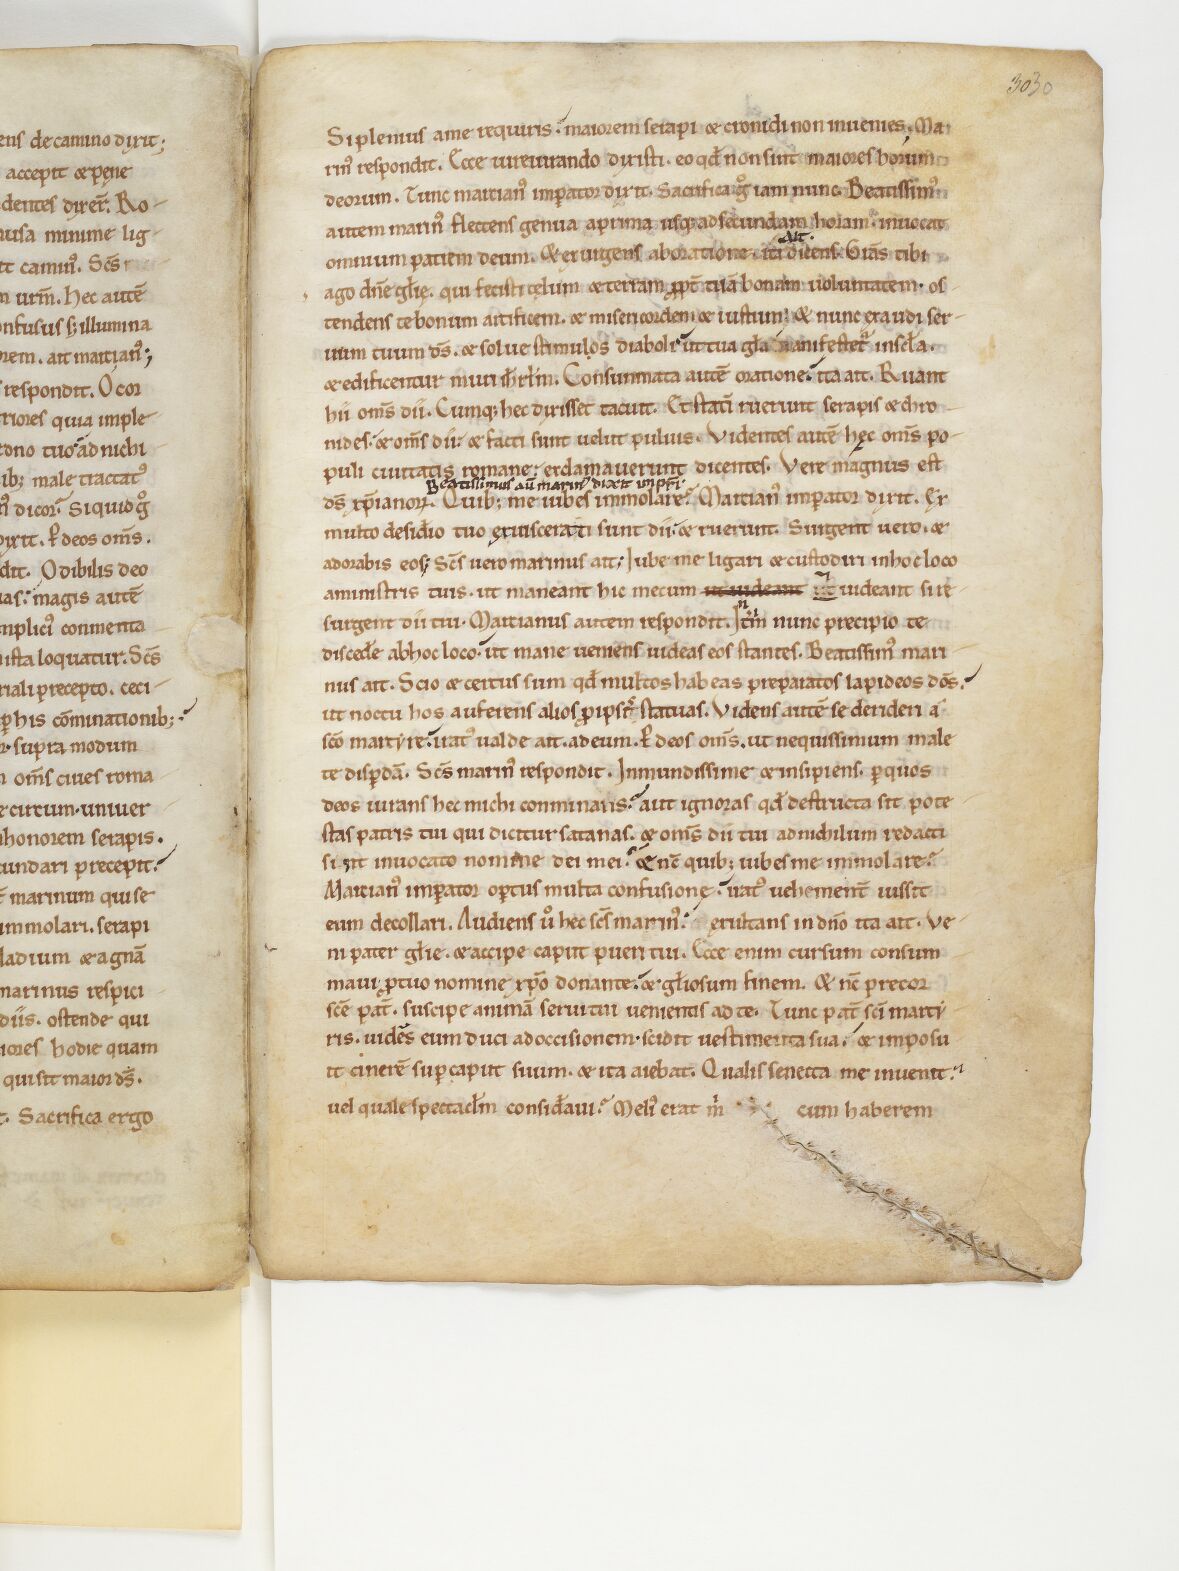 ens de camino dixit;
accepit & pene
dentes dixer̄. Ro
nusa minime lig
tt camin᷒. Sc̄s
m urm̄. hec autē
onfusus s; illumina
nem. ait martian᷒;
respondit. O cor
riores quia imple
dono tuo ad nichi
ib; male tractat᷒
n᷒ dicor. Si quid g̊
dixit. P deos om̄s.
dit. Odibilis deo
as. magis autē
mplici᷒ commenta
ista loquatur. Sc̄s
riali precepto. ceci
p̱ his cōminationib;
supra modum
om̄s ciues roma
e circum. uniuer
honorem serapis.
undari precepit.
marinum qui se
immolari. serapi
ladium & agnā
marinus respici
diis. ostende qui
iores hodie quam
qui sit maior d̄s.
t. Sacrifica ergo
3030
Si plenius a me requiris. maiorem serapi & cronidi non inuenies. Ma
rin᷒ respondit. Ecce iureiurando dixisti. eo qd̄ non sint maiores horum
deorum. Tunc martian᷒ imp̱ator dixit. Sacrifica g̊ iam nunc. Beatissim᷒
autem marin᷒ flectens genua a prima usq; ad secundam horam. inuocat
ait.
omnium patrem deum. & exurgens ab oratione. ita dicens. Gr̄as tibi
ago dn̄e gl̄ię. qui fecisti cęlum & terram propt̄ tuā bonam uoluntatem. os
tendens te bonum artificem. & misericordem & iustum; & nunc exaudi ser
uum tuum d̄s. & solue stimulos diaboli ut tua gl̄a manifestet᷒ in sc̄la.
& edificentur muri ihrl̄m. Consummata autē oratione. ita ait. Ruant
hii om̄s dii. Cumq; hec dixisset tacuit. Et statī ruerunt serapis & chro
nides. & om̄s dii. & facti sunt uelut puluis. Videntes autē hęc om̄s po
puli ciuitatis romane. exclamauerunt dicentes. Vere magnus est
Beatissimus aū marin᷒ dixit imp̱r̄i.
d̄s xp̄ianor̄. Quib; me iubes immolare. Martian᷒ imp̱ator dixit. Ex
multo desidīo tuo exuiscerati sunt dii. & ruerunt. Surgent uero. &
adorabis eos; Sc̄s uero marinus ait; Iube me ligari & custodiri in hoc loco
a ministris tuis. ut maneant hic mecum ut uideant ut uideant si re
surgent dii tui. Martianus autem respondit. Itm̄ nunc precipio te
discedēe ab hoc loco. ut mane ueniens uideas eos stantes. Beatissim᷒ mari
nus ait. Scio & certus sum qd̄ multos habeas preparatos lapideos dōs.
ut noctu hos auferens alios p̱ ipsis statuas. Videns autē se derideri a
sc̄o martyre. irat᷒ ualde ait. ad eum. P deos om̄s. ut nequissimum male
te disp̱dā. Sc̄s marin᷒ respondit. Inmundissime & insipiens. p̱ quos
deos iurans hec michi conminaris. aut ignoras qd̄ destructa sit pote
stas patris tui qui dicitur satanas. & om̄s dii tui ad nichilum redacti
sint inuocato nomine dei mei. & nc̄ quib; iubes me immolare.
Martian᷒ imp̱ator op̱tus multa confusionę. irat᷒ uehement̄ iussit
eum decollari. Audiens u̇o hec sc̄s marin᷒. exultans in dn̄o ita ait. Ve
ni pater gl̄ię. & accipe caput pueri tui. Ecce enim cursum consum
maui p̱ tuo nomine xp̄o donante. & gl̄iosum finem. & nc̄ precor
sc̄e pat̄. suscipe animā serui tui uenientis ad te. Tunc pat̄ sc̄i marty
ris. uidēs eum duci ad occisionem. scidit uestimenta sua. & imposu
it cinerē sup̱ caput suum. & ita aiebat. Qualis senecta me inuenit.
uel quale spectacl̄m consid̄aui. Meli᷒ erat m̄ cum haberem